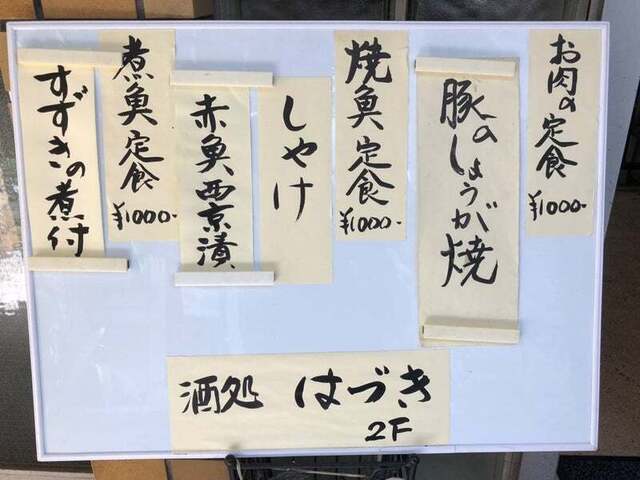 お肉の定食
¥1000-
豚のしょうが焼
焼魚定食
¥1000-
しゃけ
赤魚西京漬
煮魚定食
¥1000-
すずきの煮付
酒処 はづき
2F